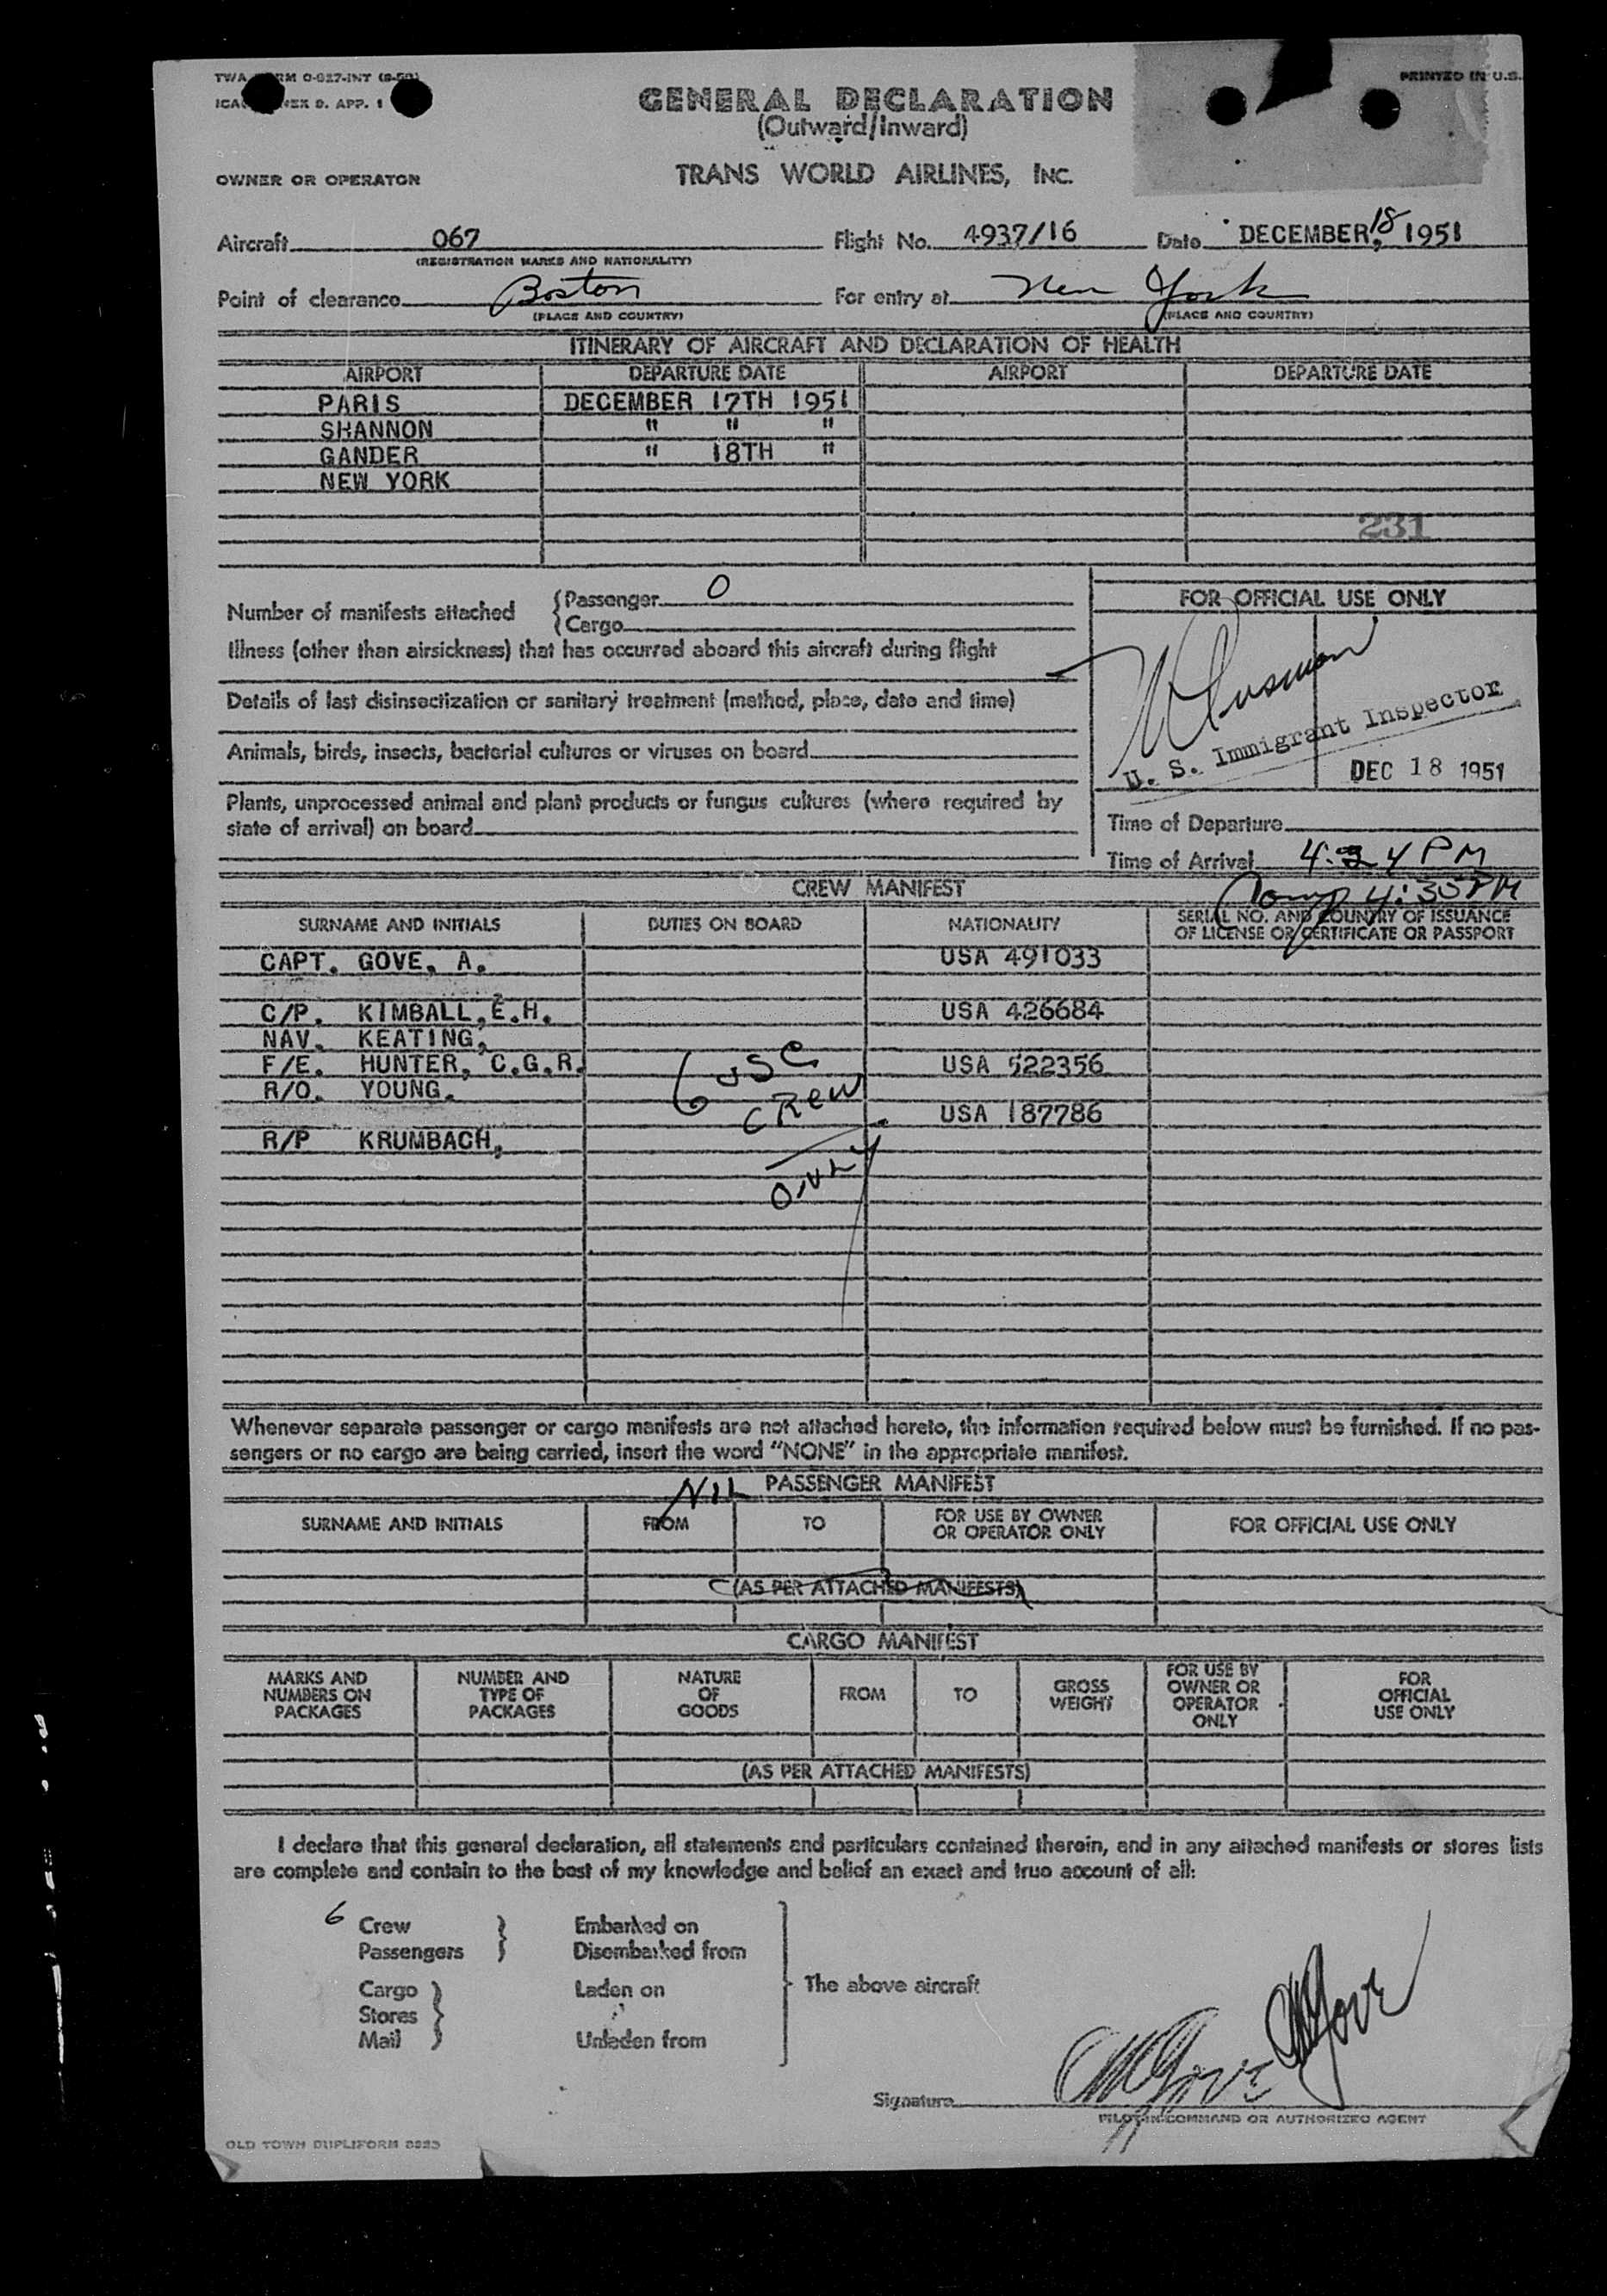 TWA FORM O-827-INT
ICAO ANNEX 9. APP. 1
PRINTED IN U.S.
GENERAL DECLARATION
(Outward/Inward)
OWNER OR OPERATOR
TRANS WORLD AIRLINES, INC.
Aircraft 067 Flight No. 4937/16 Date DECEMBER, 18 1951
(REGISTRATION MARKS AND NATIONALITY)
Point of clearance Boston For entry at New York
(PLACE AND COUNTRY) (PLACE AND COUNTRY)
ITINERARY OF AIRCRAFT AND DECLARATION OF HEALTH
AIRPORT DEPARTURE DATE AIRPORT DEPARTURE DATE
PARIS DECEMBER 17TH 1951
SHANNON " " "
GANDER " 18TH "
NEW YORK
231
Number of manifests attached
Passenger 0
Cargo
Illness (other than airsickness) that has occurred aboard this aircraft during flight
Details of last disinsectization or sanitary treatment (method, place, date and time)
Animals, birds, insects, bacterial cultures or viruses on board
Plants, unprocessed animal and plant products or fungus cultures (where required by
state of arrival) on board
FOR OFFICIAL USE ONLY
U. S. Immigrant Inspector
DEC 18 1951
Time of Departure
Time of Arrival 4:24 PM
4:35 PM
CREW MANIFEST
SURNAME AND INITIALS DUTIES ON BOARD NATIONALITY SERIAL NO. AND COUNTRY OF ISSUANCE
OF LICENSE OR CERTIFICATE OR PASSPORT
CAPT. GOVE, A. USA 491033
C/P. KIMBALL, E.H. USA 426684
NAV. KEATING,
F/E. HUNTER, C.G.R. USA 522356
R/O. YOUNG.
USA 187786
R/P KRUMBACH,
6 USC
CREW
ONLY
Whenever separate passenger or cargo manifests are not attached hereto, the information required below must be furnished. If no pas-
sengers or no cargo are being carried, insert the word "NONE" in the appropriate manifest.
NIL PASSENGER MANIFEST
SURNAME AND INITIALS FROM TO FOR USE BY OWNER
OR OPERATOR ONLY FOR OFFICIAL USE ONLY
(AS PER ATTACHED MANIFESTS)
CARGO MANIFEST
MARKS AND
NUMBERS ON
PACKAGES
NUMBER AND
TYPE OF
PACKAGES
NATURE
OF
GOODS
FROM
TO
GROSS
WEIGHT
FOR USE BY
OWNER OR
OPERATOR
ONLY
FOR
OFFICIAL
USE ONLY
(AS PER ATTACHED MANIFESTS)
I declare that this general declaration, all statements and particulars contained therein, and in any attached manifests or stores lists
are complete and contain to the best of my knowledge and belief an exact and true account of all:
6 Crew Embarked on
Passengers Disembarked from
Cargo Laden on The above aircraft
Stores
Mail Unladen from
Signature A Gove A Gove
PILOT IN COMMAND OR AUTHORIZED AGENT
OLD TOWN DUPLIFORM